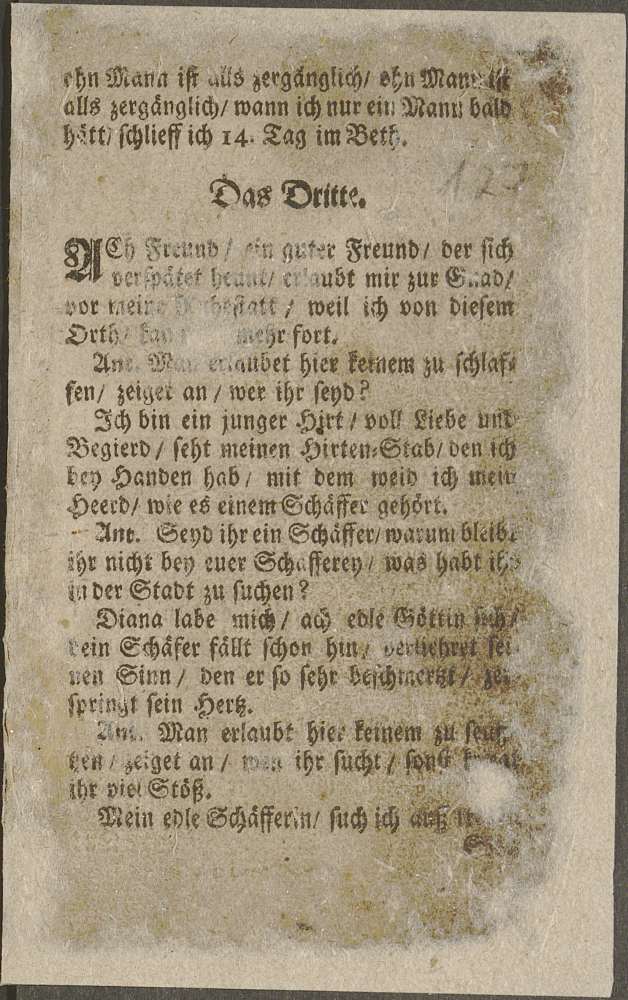 ohn Mann ist alls zergänglich/ ohn Mann ist
alls zergänglich/ wann ich nur ein Mann bald
hätt/ schlieff ich 14. Tag im Beth.
127
Das Dritte.
ACh Freund / ein guter Freund/ der sich
verspätet heunt/ erlaubt mir zur Gnad/
vor meine / weil ich von diesem
Orth/ mehr fort.
Ant. Man erlaubet hier keinem zu schlaf-
fen/ zeiget an / wer ihr seyd?
Ich bin ein junger Hirt / voll Liebe und
Begierd / seht meinen Hirten-Stab/ den ich
bey Handen hab / mit dem weid ich mein
Heerd/ wie es einem Schäffer gehört.
Ant. Seyd ihr ein Schäffer/ warum bleibt
ihr nicht bey euer Schafferey / was habt ihr
in der Stadt zu suchen?
Diana labe mich / ach edle Göttin sich/
dein Schäfer fällt schon hin/ verliehret sei-
nen Sinn / den er so sehr beschmertzt / zer-
springt sein Hertz.
Ant. Man erlaubt hier keinem zu seuff-
tzen / zeiget an / wen ihr sucht / sonst
ihr viel Stöß.
Mein edle Schäfferin/ such ich auß